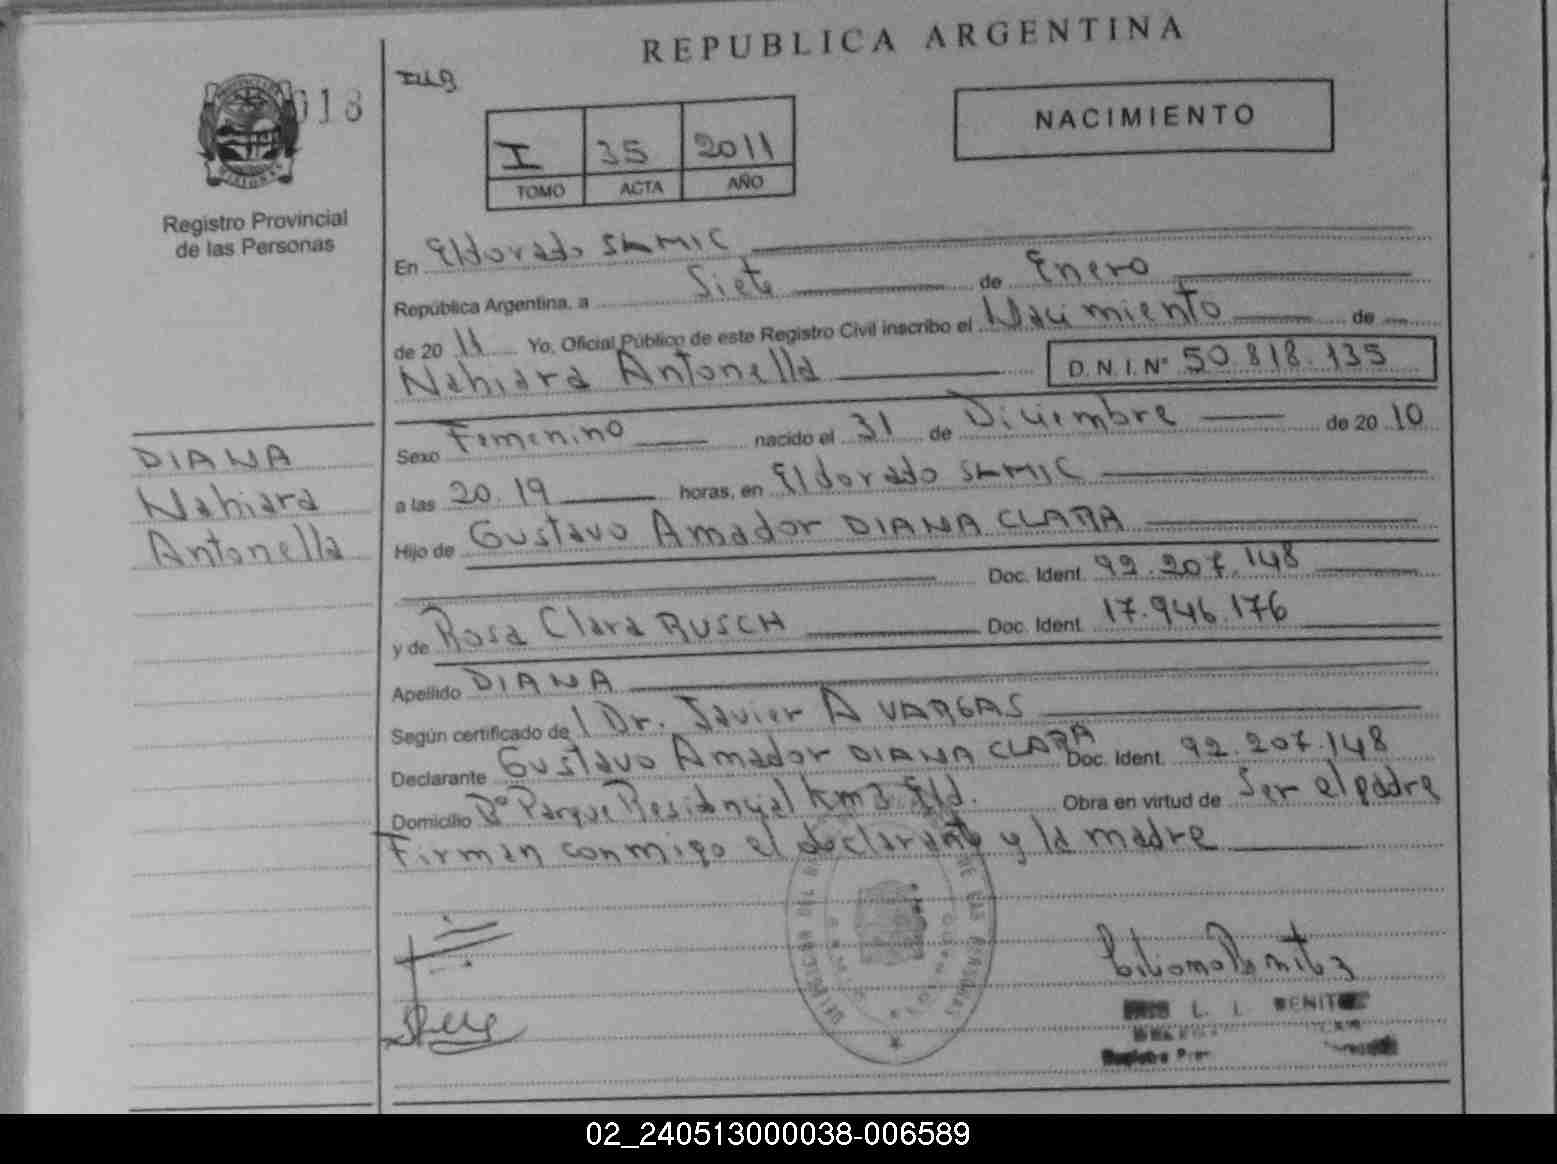 REPUBLICA ARGENTINA
018
NACIMIENTO
I 35 2011
TOMO ACTA AÑO
Registro Provincial
de las Personas
En Eldorado SAMIC
República Argentina, a Siete de Enero
de 20 11 Yo, Oficial Público de este Registro Civil inscribo el Nacimiento de
Nahiara Antonella D.N.I.Nº 50.818.135
DIANA
Nahiara
Antonella
Sexo Femenino nacido el 31 de Diciembre de 20 10
a las 20.19 horas, en Eldorado SAMIC
Hijo de Gustavo Amador DIANA CLARA
Doc. Ident. 92.207.148
y de Rosa Clara RUSCH Doc. Ident. 17.946.176
Apellido DIANA
Según certificado del Dr. Javier A VARGAS
Declarante Gustavo Amador DIANA CLARA Doc. Ident. 92.207.148
Domicilio Bº Parque Residencial Km 3 Eld. Obra en virtud de Ser el padre
Firman conmigo el declarante y la madre
DE LAS PERSONAS
L. I. BENITEZ
02_240513000038-006589